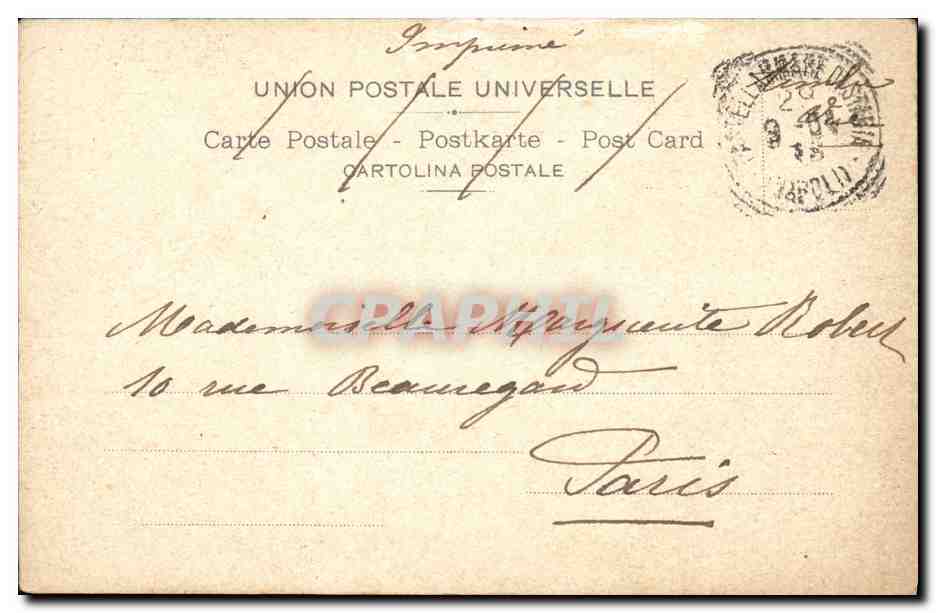 Imprimé
UNION POSTALE UNIVERSELLE
Carte Postale - Postkarte - Post Card
CARTOLINA POSTALE
CASTELLAMMARE DI STABIA
(NAPOLI)
CPAPHIL
Mademoiselle Marguerite Robert
10 rue Beauregard
Paris